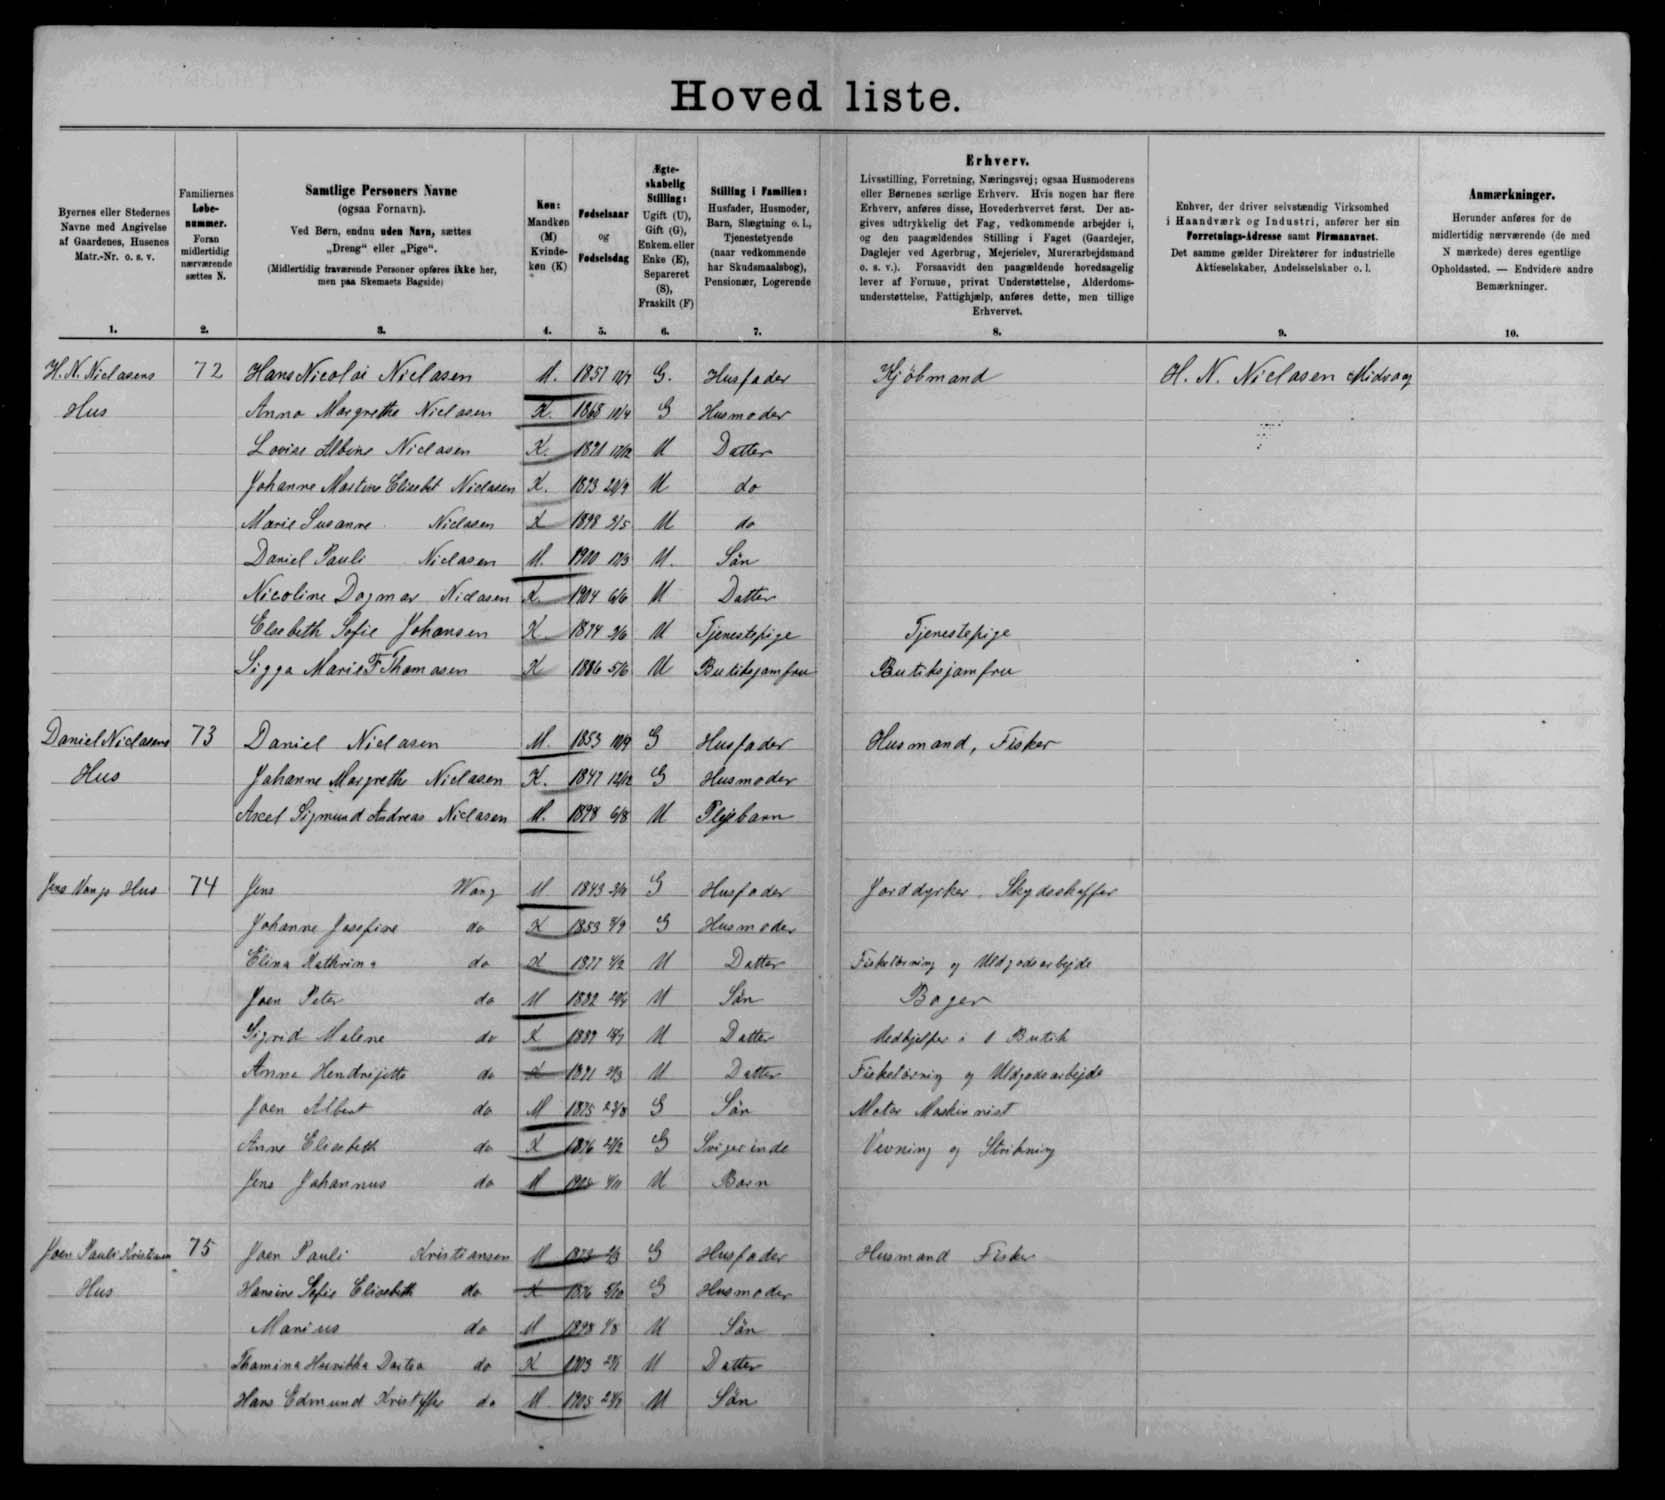 Hoved liste.
Byernes eller Stedernes Navne med Angivelse af Gaardenes, Husenes Matr.-Nr. o. s. v.
Familiernes Løbenummer. Foran midlertidig nærværende sættes N.
Samtlige Personers Navne
(ogsaa Fornavn).
Ved Børn, endnu uden Navn, sættes „Dreng“ eller „Pige“.
(Midlertidig fraværende Personer opføres ikke her, men paa Skemaets Bagside)
Køn: Mandkøn (M) Kvindekøn (K)
Fødselsaar og Fødselsdag
Ægteskabelig Stilling: Ugift (U), Gift (G), Enkem. eller Enke (E), Separeret (S), Fraskilt (F)
Stilling i Familien: Husfader, Husmoder, Barn, Slægtning o. l., Tjenestetyende (naar vedkommende har Skudsmaalsbog), Pensionær, Logerende
Erhverv.
Livsstilling, Forretning, Næringsvej; ogsaa Husmoderens eller Børnenes særlige Erhverv. Hvis nogen har flere Erhverv, anføres disse, Hovederhvervet først. Der angives udtrykkelig det Fag, vedkommende arbejder i, og den paagældendes Stilling i Faget (Gaardejer, Daglejer ved Agerbrug, Mejerielev, Murerarbejdsmand o. s. v.). Forsaavidt den paagældende hovedsagelig lever af Formue, privat Understøttelse, Alderdomsunderstøttelse, Fattighjælp, anføres dette, men tillige Erhvervet.
Enhver, der driver selvstændig Virksomhed i Haandværk og Industri, anfører her sin Forretnings-Adresse samt Firmanavnet. Det samme gælder Direktører for industrielle Aktieselskaber, Andelsselskaber o. l.
Anmærkninger.
Herunder anføres for de midlertidig nærværende (de med N mærkede) deres egentlige Opholdssted. — Endvidere andre Bemærkninger.
1. 2. 3. 4. 5. 6. 7. 8. 9. 10.
H. N. Niclasens 72 Hans Nicolai Niclasen M. 1857 G. Husfader Kjöbmand H. N. Niclasen Midvaag
Hus Anna Margrethe Niclasen K. 1868 G Husmoder
Lovise Albine Niclasen K. U Datter
Johanne Martine Elisebet Niclasen K. U do
Marie Susanne Niclasen K 1898 2/5 U do
Daniel Pauli Niclasen M. 1900 U. Sön
Nicoline Dagmar Niclasen K. 1904 6/6 U Datter
Elsebeth Sofie Johansen K 1874 U Tjenestepige Tjenestepige
Sigga Marie F Thomasen K 1886 5/6 U Butiksjomfru Butiksjomfru
Daniel Niclasens 73 Daniel Niclasen M. 1853 G Husfader Husmand, Fisker
Hus Johanne Margrethe Niclasen K. 1847 12/12 G Husmoder
Axel Sigmund Andreas Niclasen M. 1898 6/8 U Plejebarn
Jens Vangs Hus 74 Jens Wang M 1843 G Husfader Jorddyrker, Skydsskaffer
Johanne Josefine do K 1853 G Husmoder
Elina Kathrina do K 1877 U Datter Fiskeløsning og Uldgodsarbejde
Joen Peter do M 1882 U Sön Bager
Sigrid Malene do K U Datter Medhjelper i Butik
Anna Hendrijette do K U Datter Fiskeløsning og Uldgodsarbejde
Joen Albert do M 1875 23/8 G Sön Motor Maskinnist
Anne Elisebeth do K 1876 G Svigerinde Vevning og Strikning
Jens Johannus do M U Barn
Joen Pauli Kristiansen 75 Joen Pauli Kristiansen M G Husfader Husmand Fisker
Hus Hansine Sofie Elisebeth do K 1876 G Husmoder
Marius do M 1898 U Sön
Thomina do K 1903 U Datter
Hans Edmund Kristoffer do M. 1905 U Sön